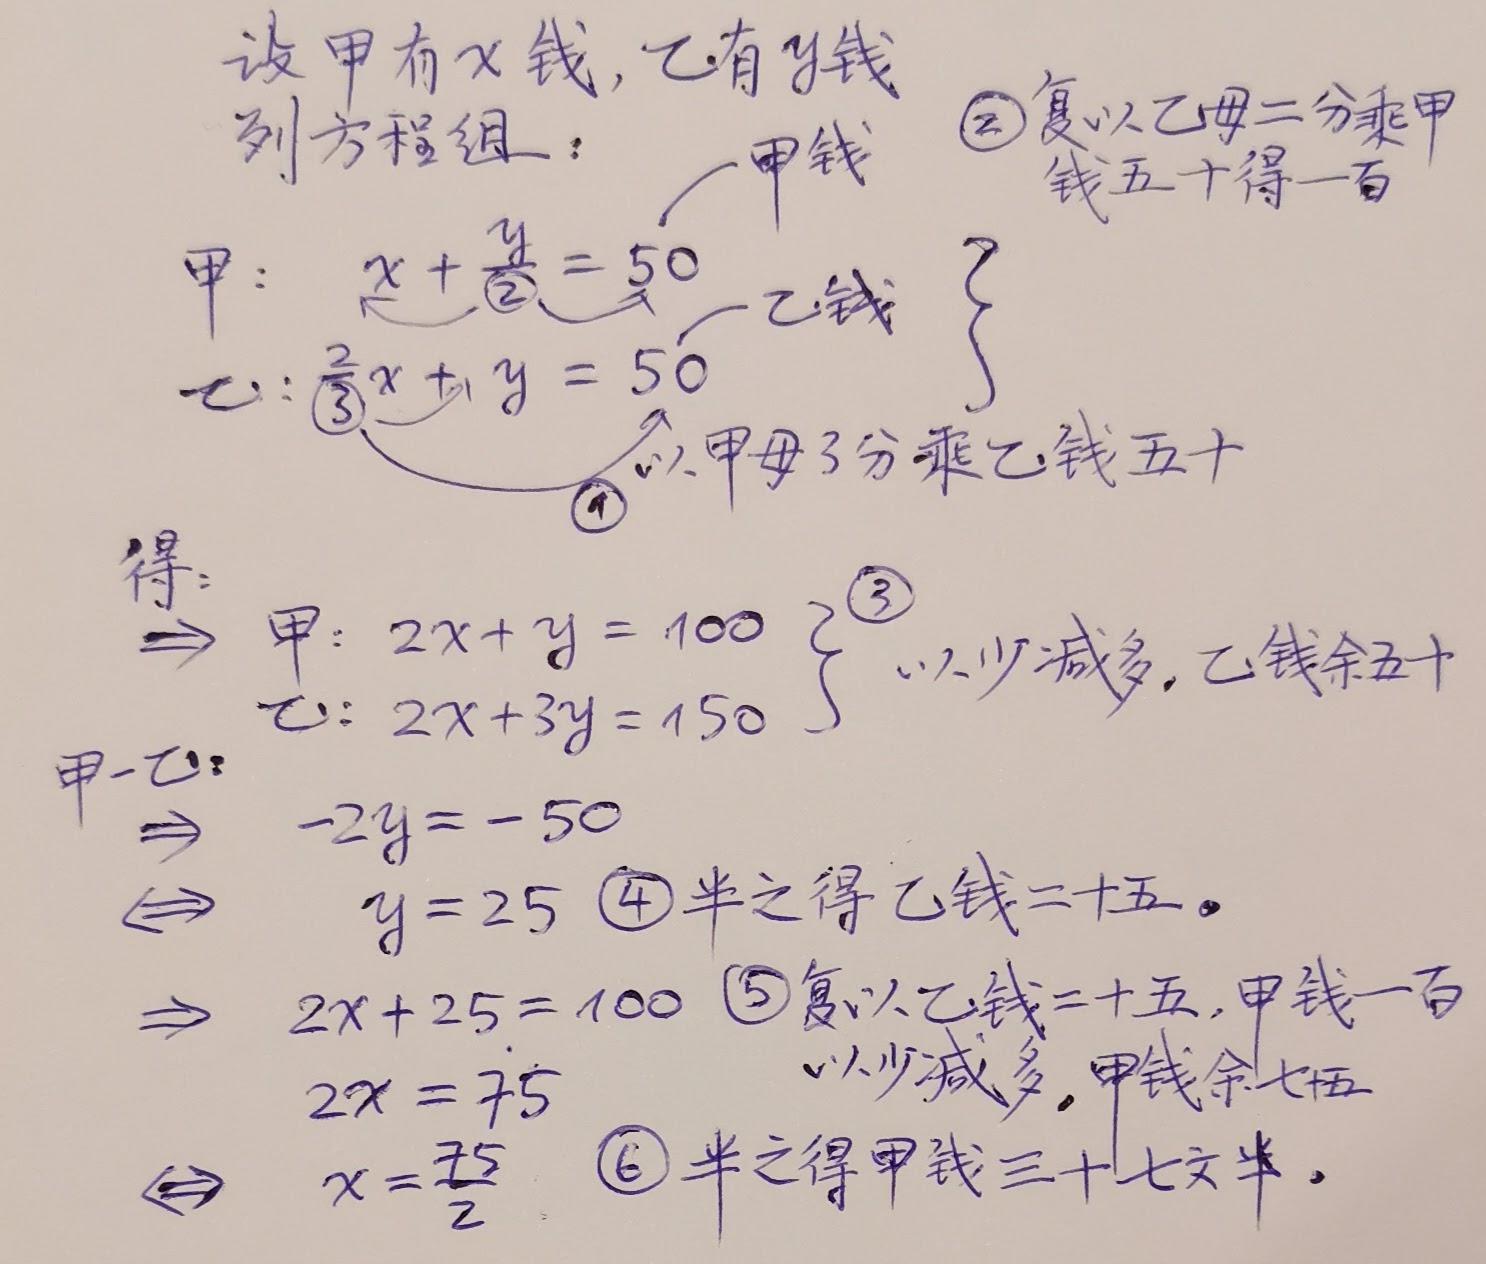 设甲有x钱,乙有y钱
列方程组:
甲钱
②复以乙母二分乘甲
钱五十得一百
甲: x + y/2 = 50
乙钱
乙: 2/3 x + y = 50
①以甲母3分乘乙钱五十
得:
⇒ 甲: 2x + y = 100
③
以少减多,乙钱余五十
乙: 2x + 3y = 150
甲-乙:
⇒ -2y = -50
⇔ y = 25 ④半之得乙钱二十五。
⇒ 2x + 25 = 100 ⑤复以乙钱二十五,甲钱一百
以少减多,甲钱余七十五
2x = 75
⇔ x = 75/2 ⑥半之得甲钱三十七文半.